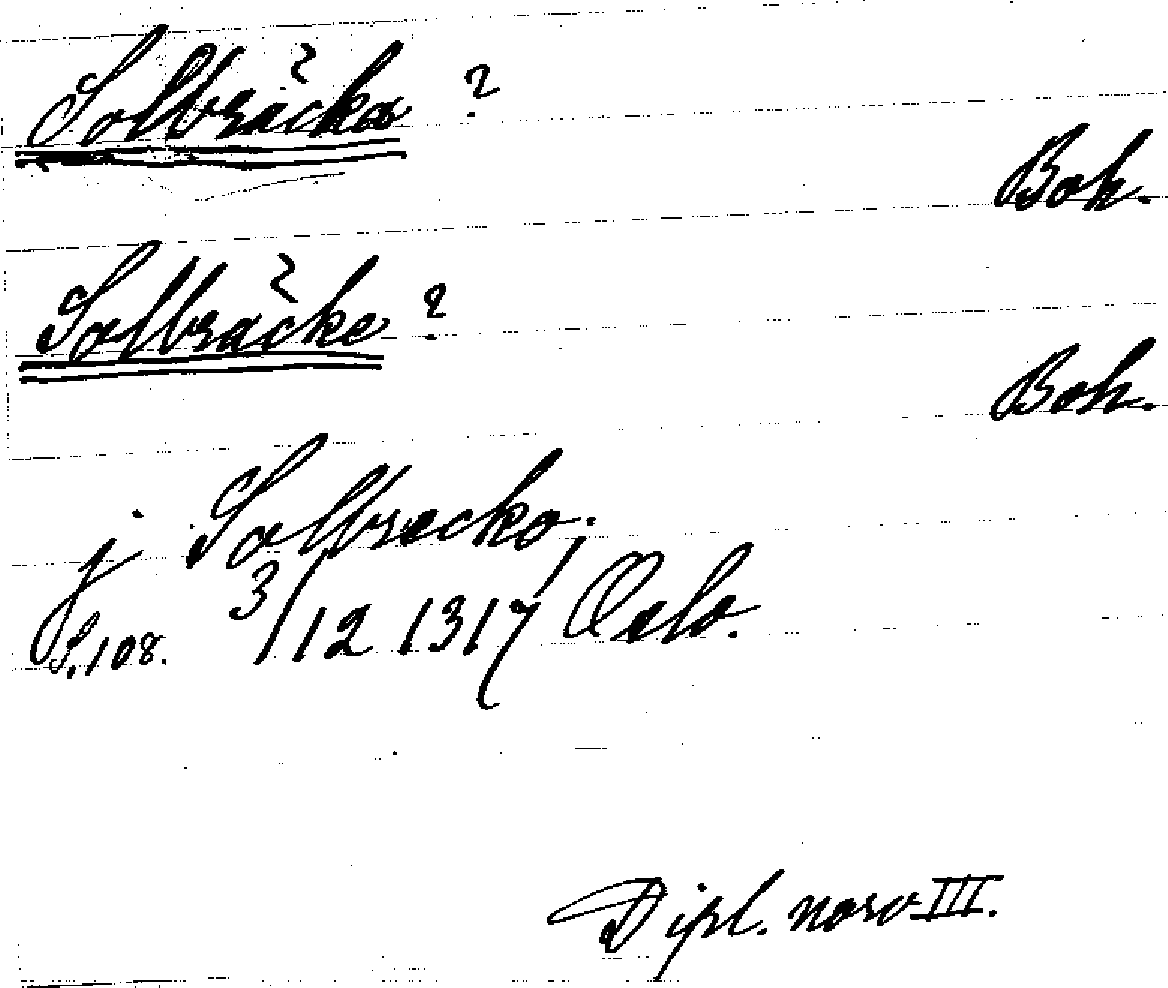 Solbräcka ?
Boh.
Solbräcke ?
Boh.
j Solbrecko,
S. 108. 3/12 1317 Oslo.
Dipl. norv III.